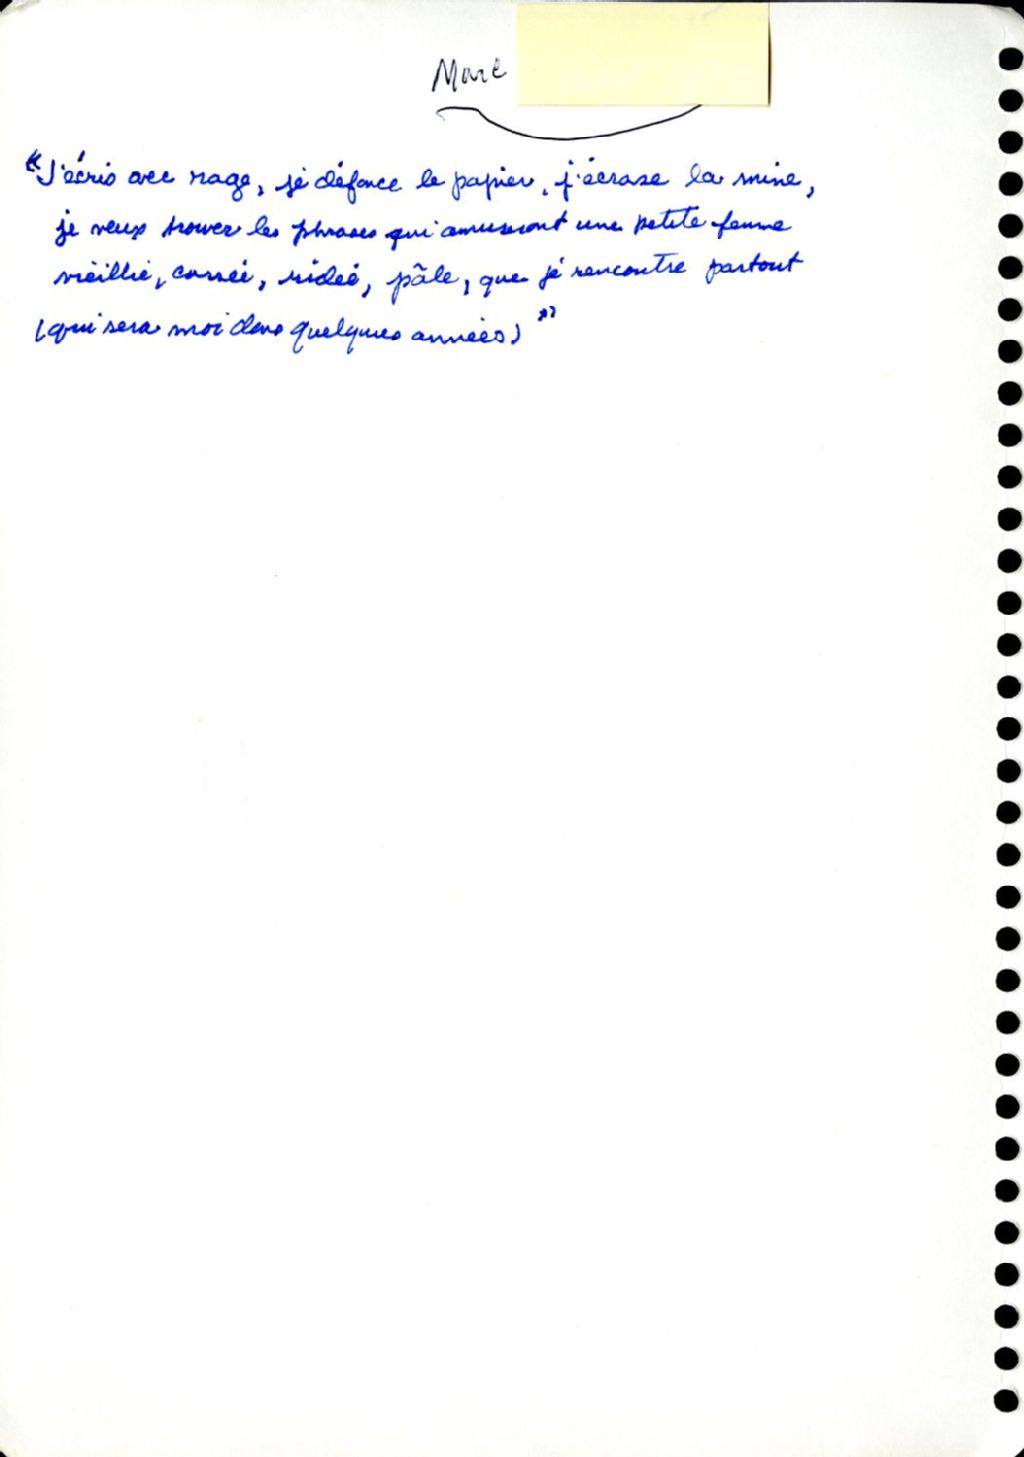 Marc
"J'écris avec rage, je défonce le papier, j'écrase la mine,
je veux trouver les phrases qui amuseront une petite femme
vieillie, cassée, ridée, pâle, que je rencontre partout
(qui sera moi dans quelques années)"